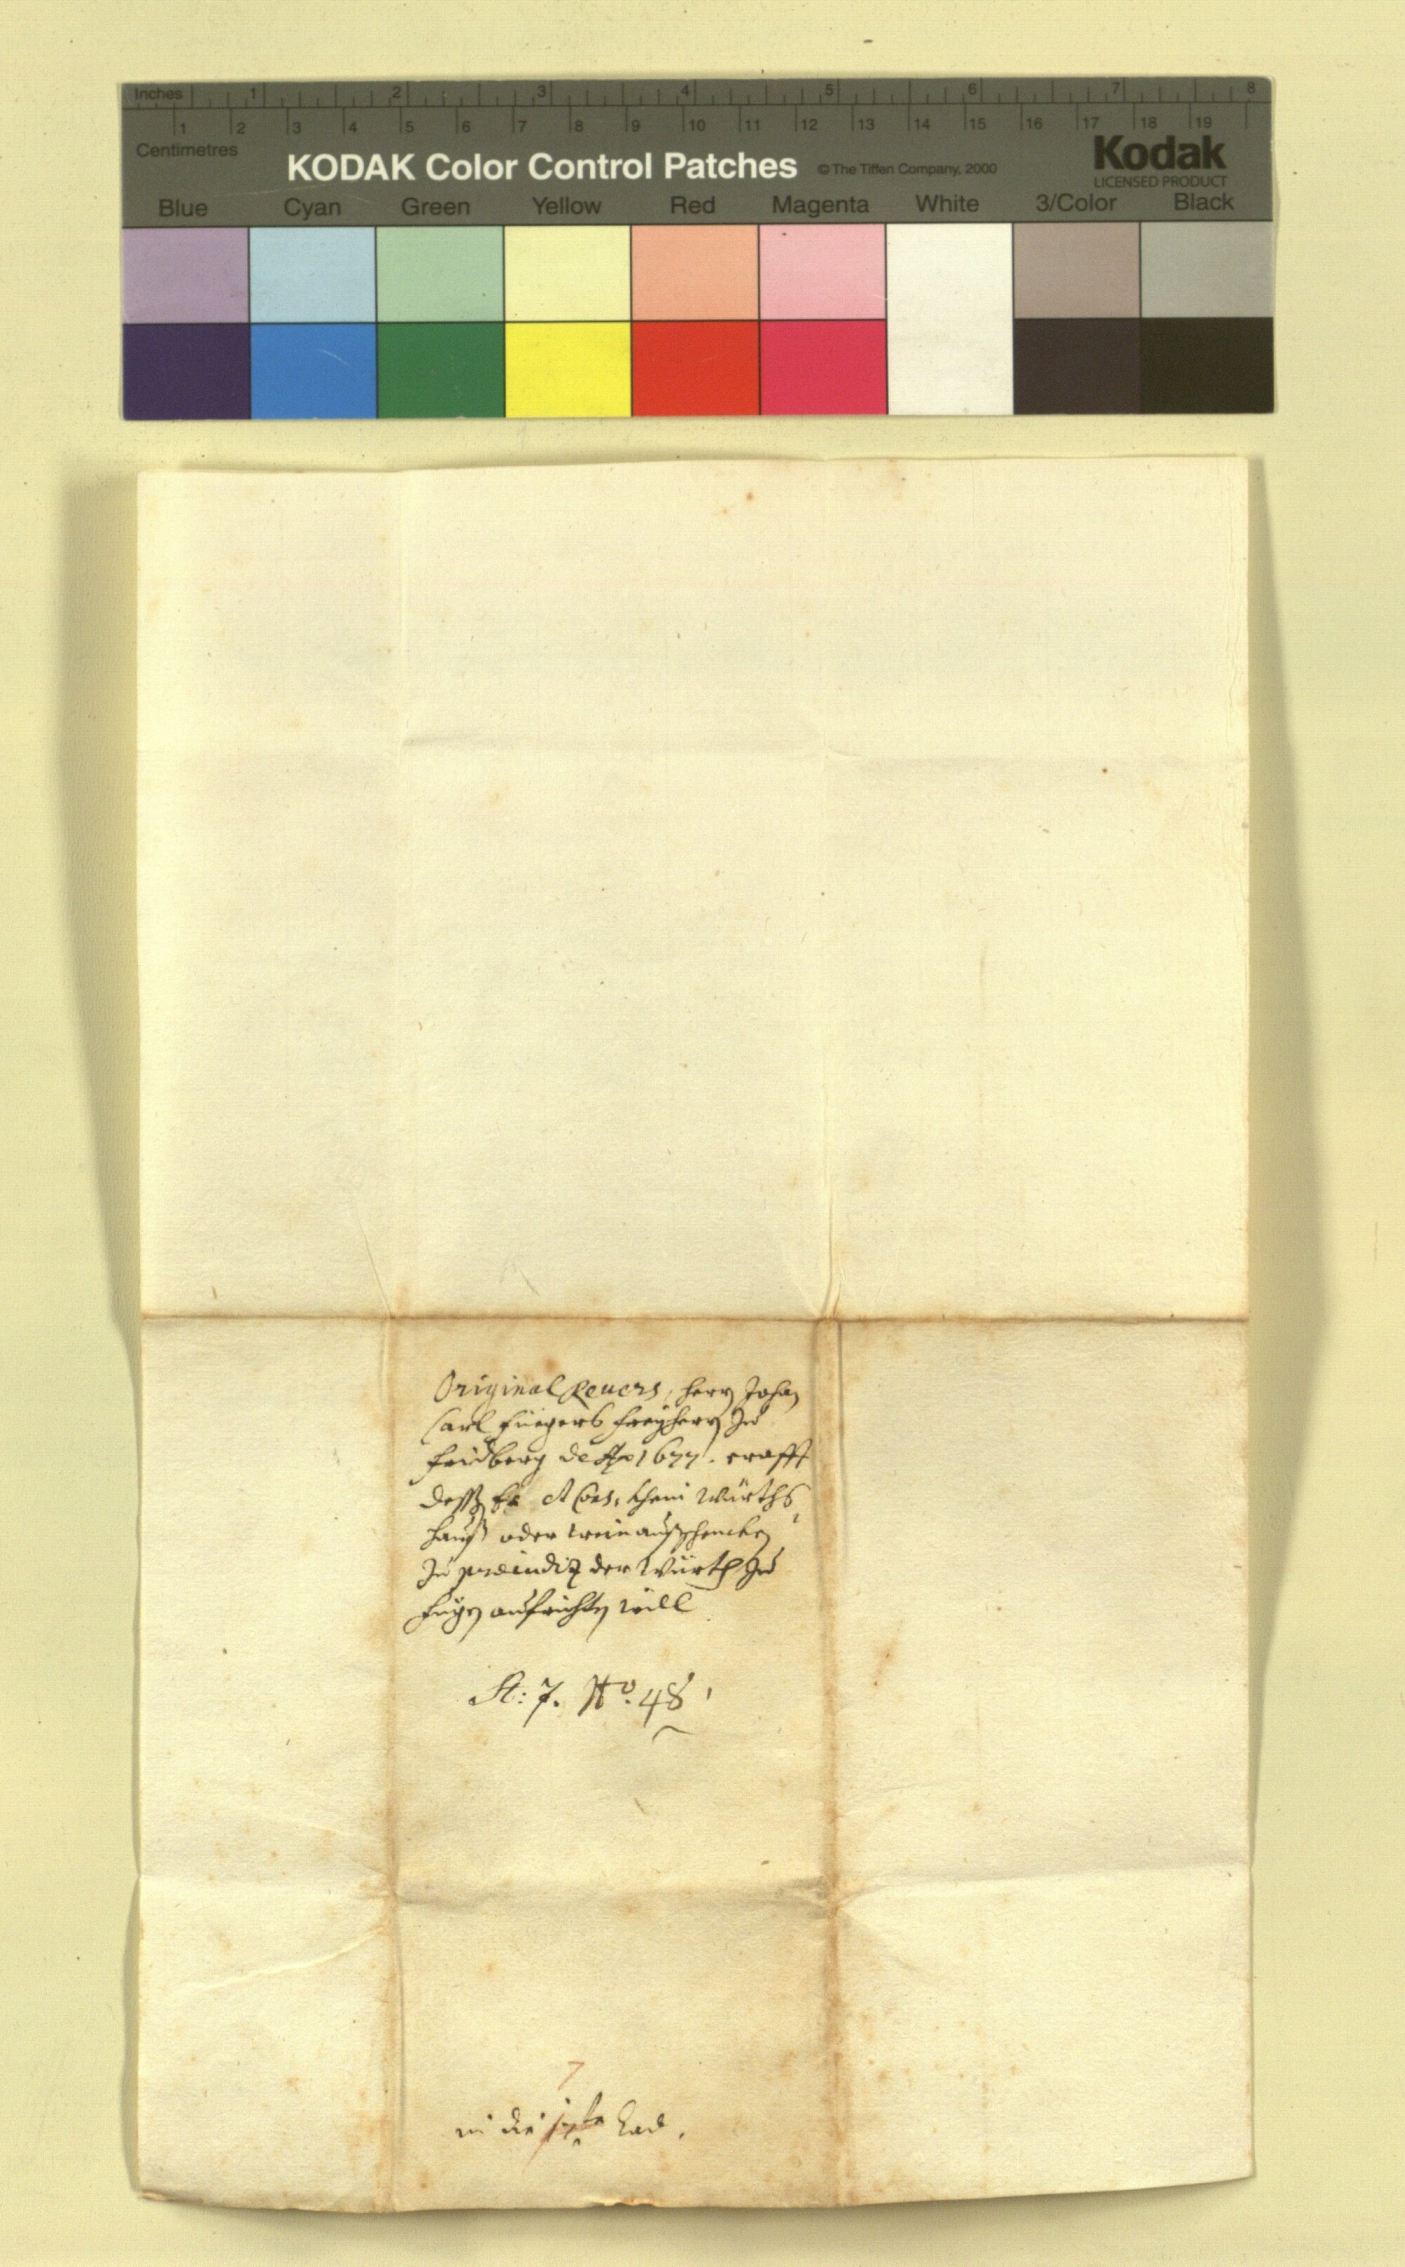 Inches 1 2 3 4 5 6 7 8
1 2 3 4 5 6 7 8 9 10 11 12 13 14 15 16 17 18 19
Centimetres
KODAK Color Control Patches © The Tiffen Company, 2000
Kodak
LICENSED PRODUCT
Blue Cyan Green Yellow Red Magenta White 3/Color Black
Original Revers, herrn Johan
Carl Füegers Freyherrn zu
Fridberg de Ao 1677. crafft
dessen Er et Cons. khein Würths
hauß oder weinausschencken
zu praeiudiz der Würth zu
Fügen aufrichten will
St: 7. No. 48
7
in die Lad.